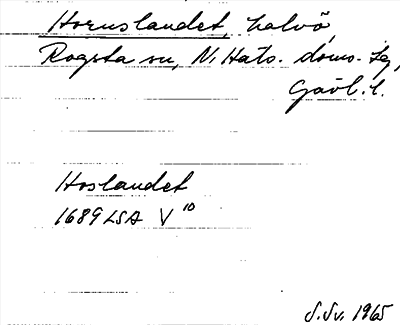 Hornslandet, halvö,
Rogsta sn, N. Häls. doms. tg,
Gävl. l.
Hoslandet
1689 LSA V 10
S. Sv. 1965